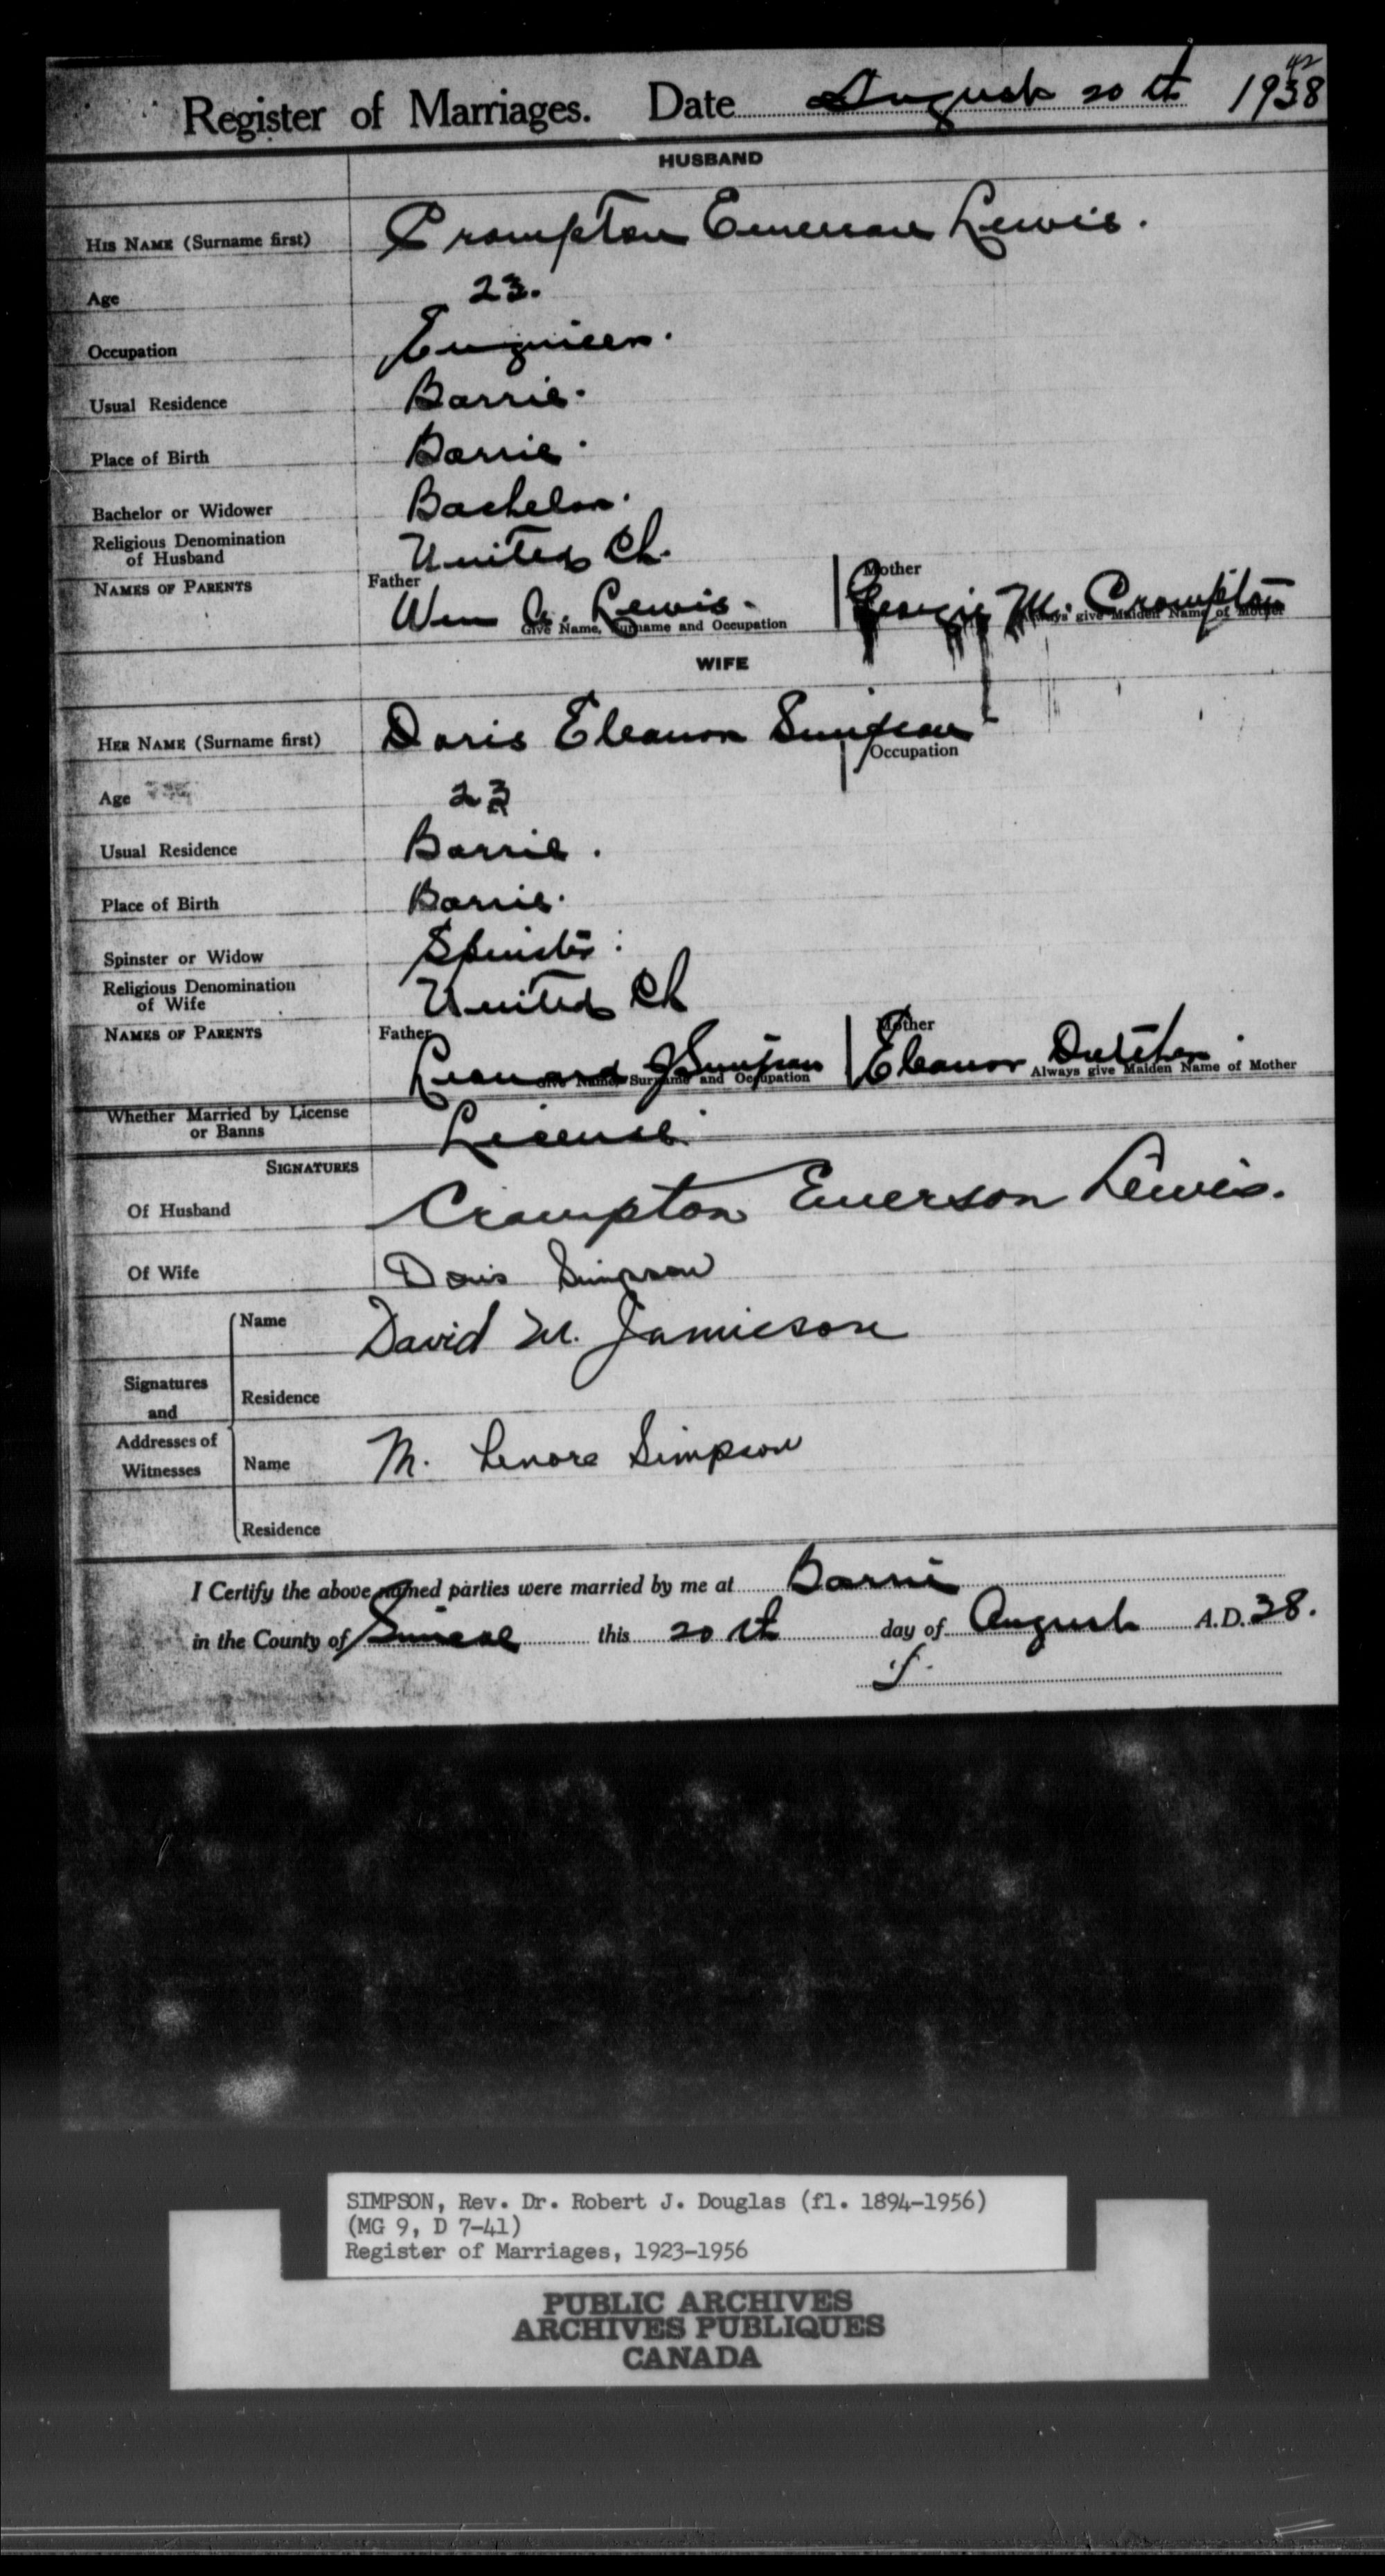 42
Register of Marriages. Date August 20th 1938
HUSBAND
HIS NAME (Surname first) Crompton Emerson Lewis.
Age 23.
Occupation Engineer.
Usual Residence Barrie.
Place of Birth Barrie.
Bachelor or Widower Bachelor.
Religious Denomination of Husband United Ch.
NAMES OF PARENTS Father Wm A. Lewis. Mother Georgie M. Crompton
Give Name, Surname and Occupation Always give Maiden Name of Mother
WIFE
HER NAME (Surname first) Doris Eleanor Simpson Occupation
Age 23
Usual Residence Barrie.
Place of Birth Barrie.
Spinster or Widow Spinster
Religious Denomination of Wife United Ch
NAMES OF PARENTS Father Leonard J Simpson Mother Eleanor Dutcher.
Give Name, Surname and Occupation Always give Maiden Name of Mother
Whether Married by License or Banns License
SIGNATURES
Of Husband Crompton Emerson Lewis.
Of Wife Doris Simpson
Name David M. Jamieson
Signatures and Addresses of Witnesses
Residence
Name M. Lenore Simpson
Residence
I Certify the above named parties were married by me at Barrie
in the County of Simcoe this 20th day of August A.D. 38.
SIMPSON, Rev. Dr. Robert J. Douglas (fl. 1894-1956)
(MG 9, D 7-41)
Register of Marriages, 1923-1956
PUBLIC ARCHIVES
ARCHIVES PUBLIQUES
CANADA